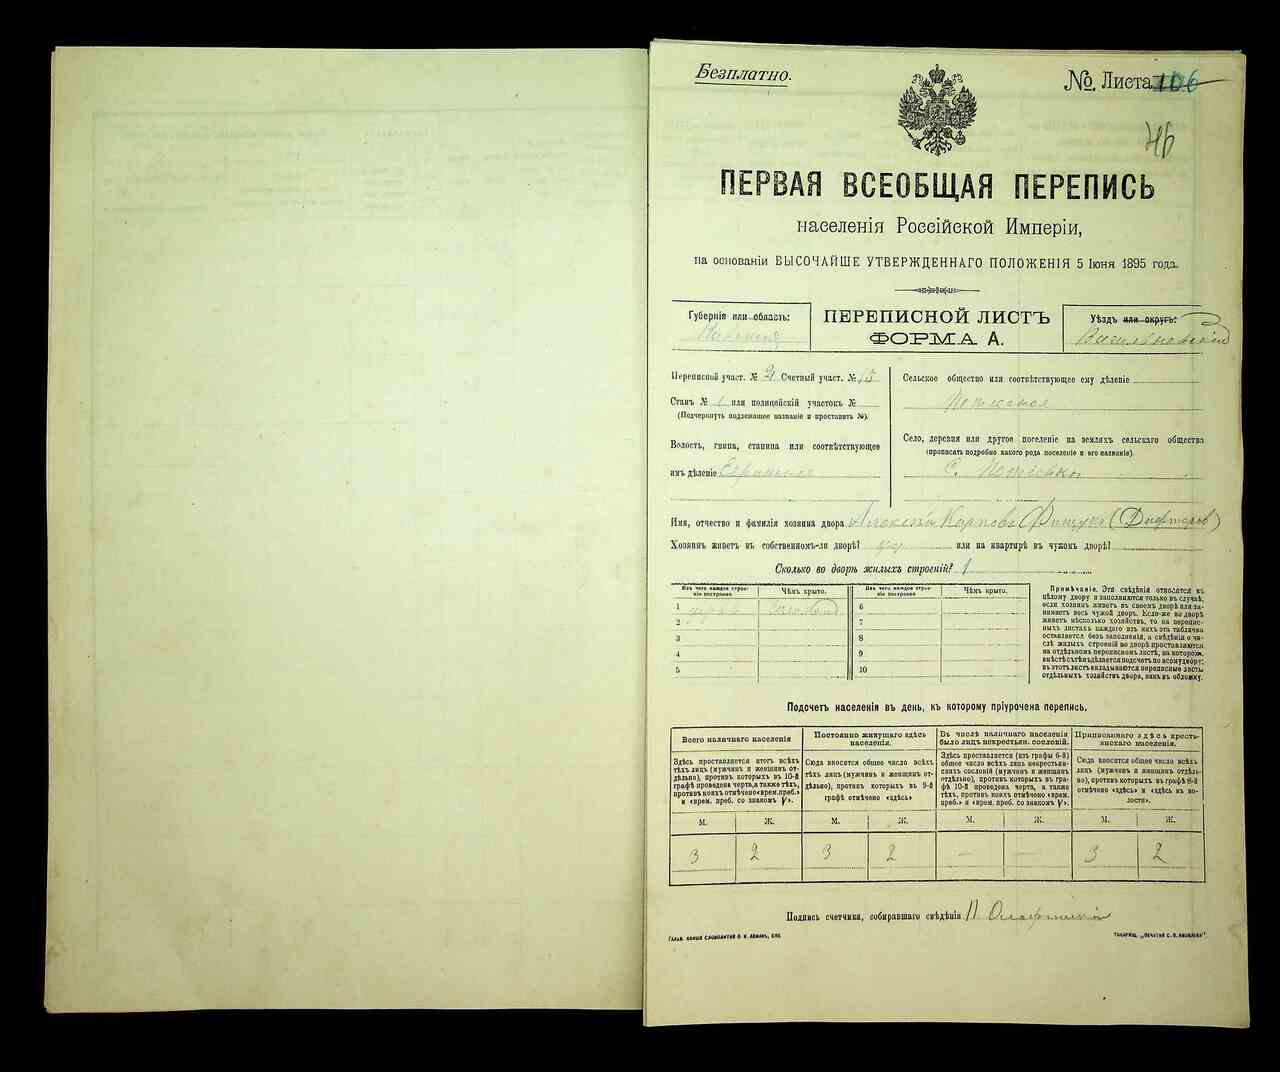 Безплатно.
№ Листа 106
ПЕРВАЯ ВСЕОБЩАЯ ПЕРЕПИСЬ
населенія Россійской Имперіи,
на основаніи ВЫСОЧАЙШЕ УТВЕРЖДЕННАГО ПОЛОЖЕНІЯ 5 Іюня 1895 года.
Губернія или область:
ПЕРЕПИСНОЙ ЛИСТЪ
ФОРМА А.
Уѣздъ или округъ:
Васильковскій
Переписной участ. № Счетный участ. №
Станъ № 1 или полицейскій участокъ №
(Подчеркнуть надлежащее названіе и проставить №).
Волость, гмина, станица или соотвѣтствующее
имъ дѣленіе
Сельское общество или соотвѣтствующее ему дѣленіе
Село, деревня или другое поселеніе на земляхъ сельскаго общества
(прописать подробно какого рода поселеніе и его названіе).
С.
Имя, отчество и фамилія хозяина двора Алексѣй Карповъ
Хозяинъ живетъ въ собственномъ-ли дворѣ? или на квартирѣ въ чужомъ дворѣ?
Сколько во дворѣ жилыхъ строеній? 1
Изъ чего каждое строеніе построено
Чѣмъ крыто.
Изъ чего каждое строеніе построено
Чѣмъ крыто.
1 соломой 6
2 7
3 8
4 9
5 10
Примѣчаніе. Эти свѣдѣнія относятся къ
цѣлому двору и заполняются только въ случаѣ,
если хозяинъ живетъ въ своемъ дворѣ или занимаетъ
весь чужой дворъ. Если-же во дворѣ
живетъ нѣсколько хозяйствъ, то на переписныхъ
листахъ каждаго изъ нихъ эта табличка
оставляется безъ заполненія, а свѣдѣнія о числѣ
жилыхъ строеній во дворѣ проставляются
на отдѣльномъ переписномъ листѣ, на которомъ
вмѣстѣ съ тѣмъ дѣлается подсчетъ по всему двору;
въ этотъ листъ вкладываются переписные листы
отдѣльныхъ хозяйствъ двора, какъ въ обложку.
Подсчетъ населенія въ день, къ которому пріурочена перепись.
Всего наличнаго населенія
Здѣсь проставляется итогъ всѣхъ
тѣхъ лицъ (мужчинъ и женщинъ отдѣльно),
противъ которыхъ въ 10-й
графѣ проведена черта, а также тѣхъ,
противъ коихъ отмѣчено «врем. преб.»
и «врем. преб. со знакомъ V».
Постоянно живущаго здѣсь
населенія.
Сюда вносится общее число всѣхъ
тѣхъ лицъ (мужчинъ и женщинъ отдѣльно),
противъ которыхъ въ 9-й
графѣ отмѣчено «здѣсь»
Въ числѣ наличнаго населенія
было лицъ некрестьян. сословій.
Здѣсь проставляется (изъ графы 6-й)
общее число всѣхъ лицъ некрестьянскихъ
сословій (мужчинъ и женщинъ
отдѣльно), противъ которыхъ въ графѣ
10-й проведена черта, а также
тѣхъ, противъ коихъ отмѣчено «врем.
преб.» и «врем. преб. со знакомъ V».
Приписаннаго здѣсь крестьянскаго
населенія.
Сюда вносится общее число всѣхъ
лицъ (мужчинъ и женщинъ отдѣльно),
противъ которыхъ въ графѣ 8-й
отмѣчено «здѣсь» и «здѣсь въ волости».
М. Ж. М. Ж. М. Ж. М. Ж.
3 2 3 2 — — 3 2
Подпись счетчика, собиравшаго свѣдѣнія